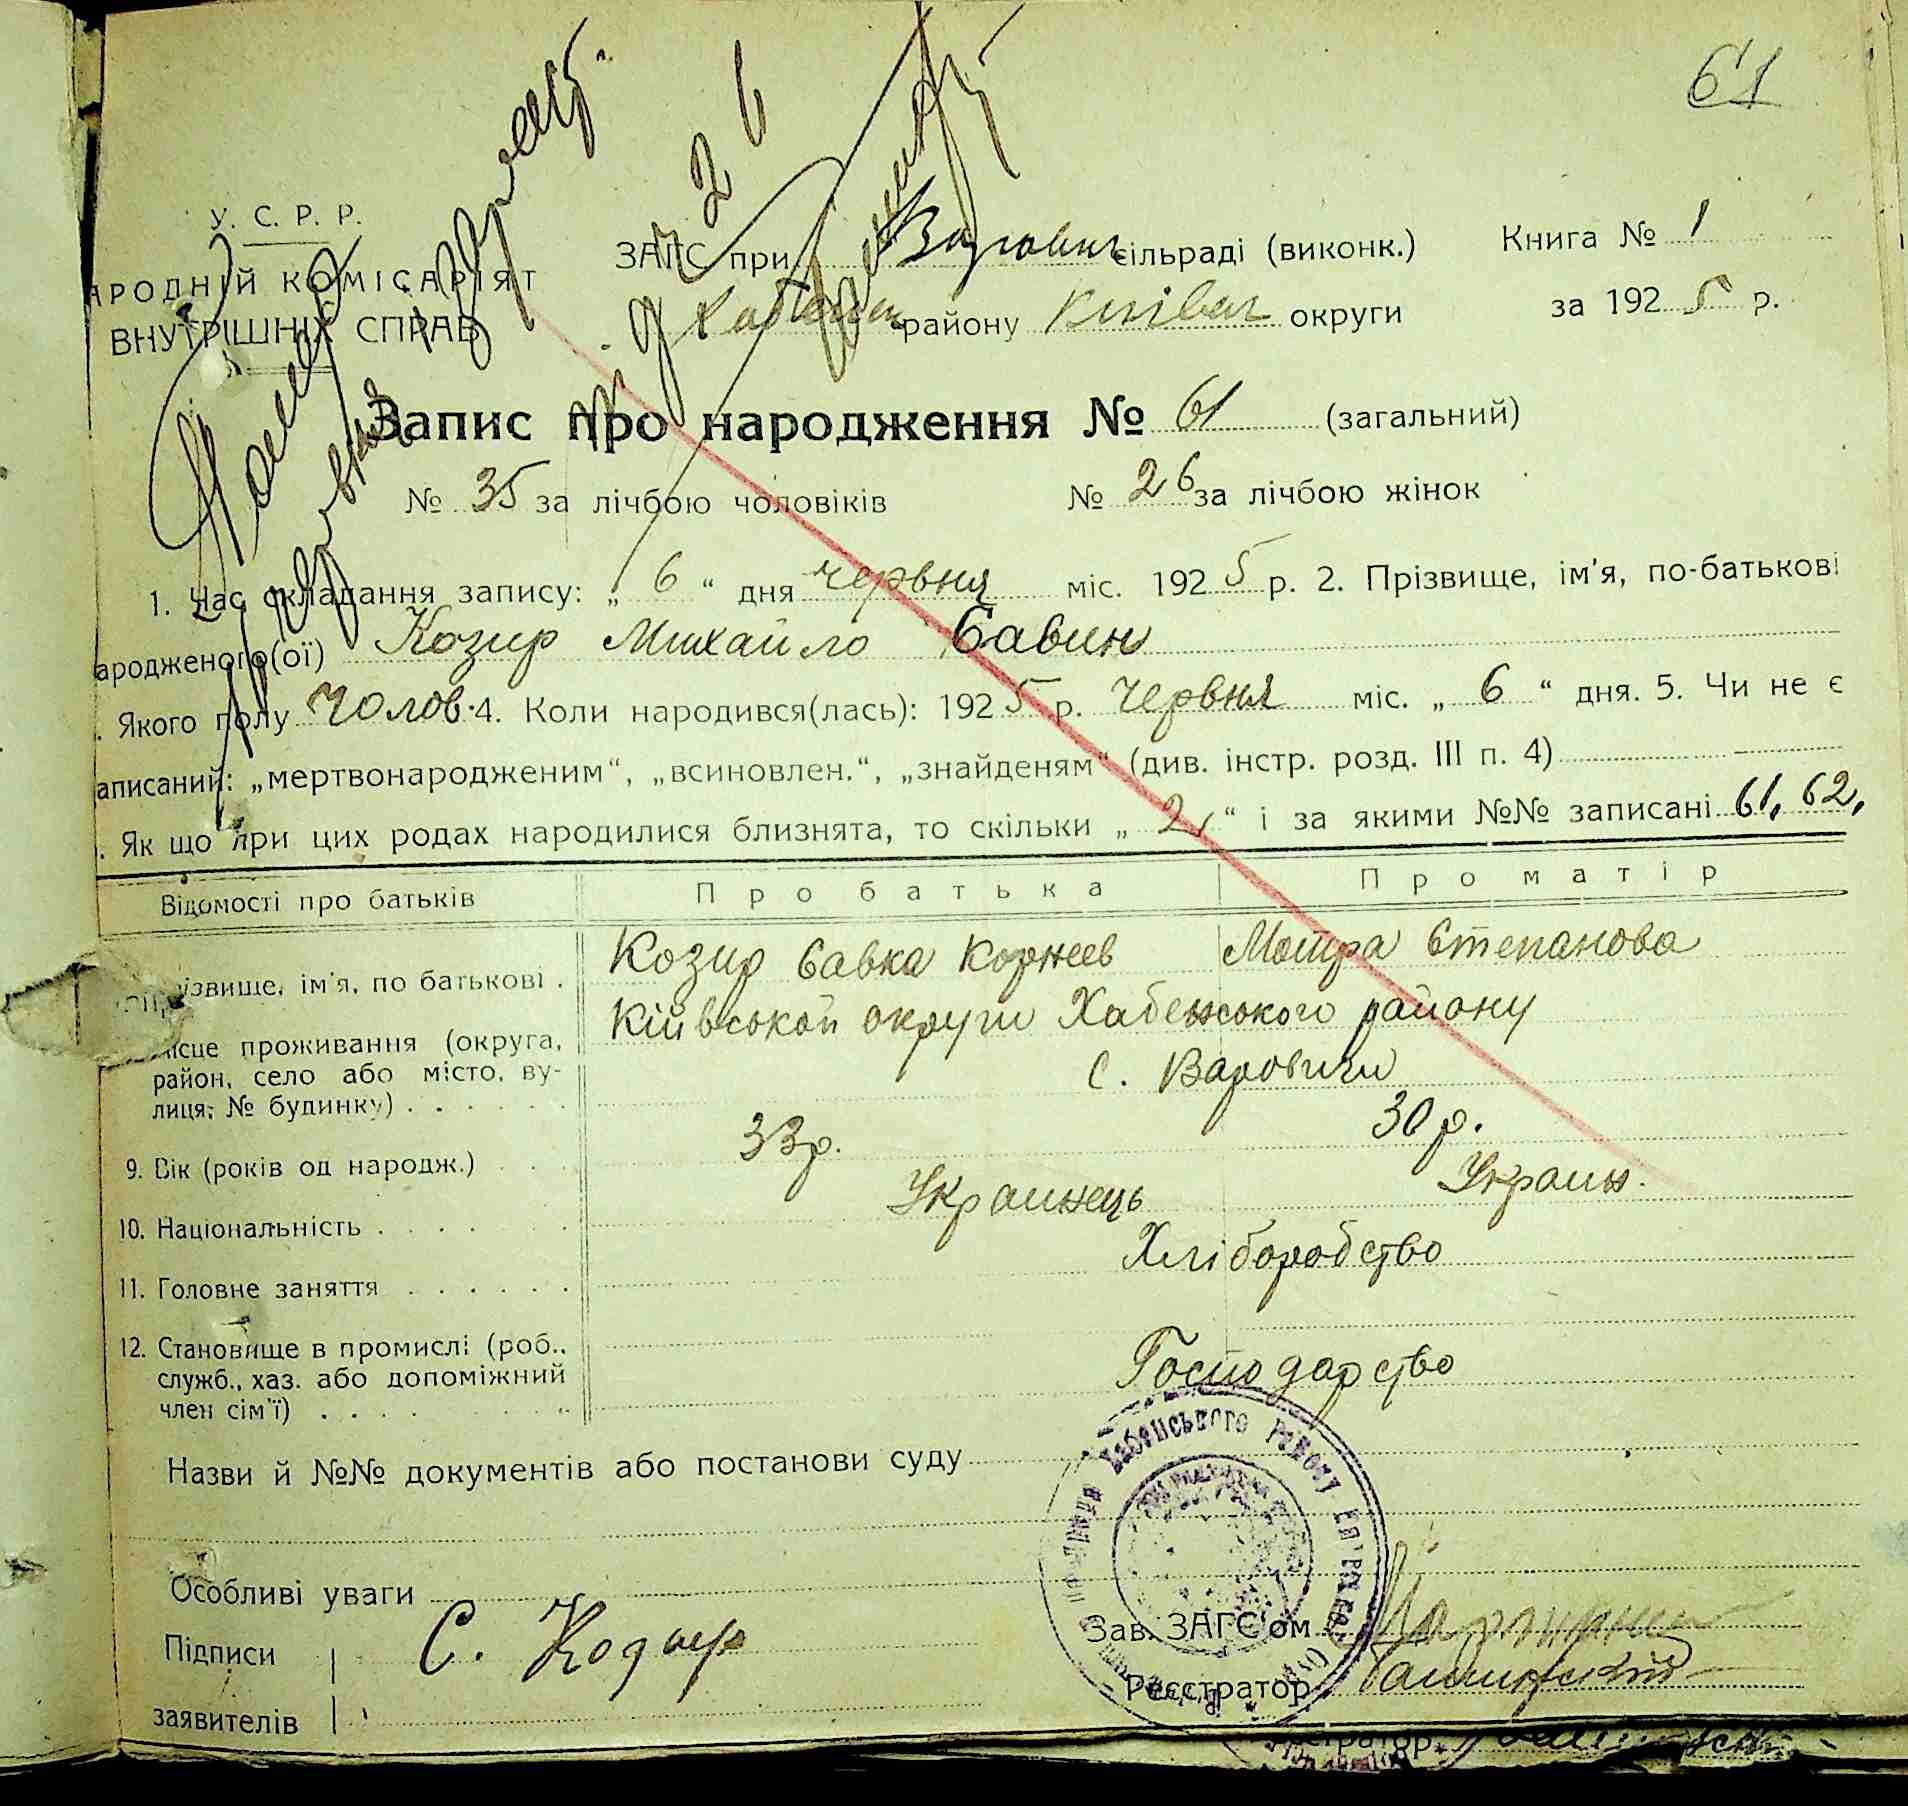 61
У. С. Р. Р.
АРОДНІЙ КОМІСАРІЯТ
ВНУТРІШНІХ СПРАВ
ЗАГС при сільраді (виконк.) Книга № 1
району округи за 1925 р.
Запис про народження № 61 (загальний)
№ 35 за лічбою чоловіків № 26 за лічбою жінок
1. Час складання запису: „ 6 “ дня червня міс. 1925 р. 2. Прізвище, ім'я, по-батькові
ародженого(ої) Козир Михайло Савин
. Якого полу Чолов. 4. Коли народився(лась): 1925 р. Червня міс. „ 6 “ дня. 5. Чи не є
аписаний: „мертвонародженим“, „всиновлен.“, „знайденям“ (див. інстр. розд. III п. 4)
. Як що при цих родах народилися близнята, то скільки „ 2, “ і за якими №№ записані 61, 62,
Відомості про батьків Про батька Про матір
ізвище, ім'я, по батькові . Козир Савка Корнеев Мотра Степанова
Київськой округи Хабенського району
ісце проживання (округа,
район, село або місто, ву-
лиця, № будинку) . . . . . с. Варовичи
9. Вік (років од народж.) . . . 33р. 30р.
10. Національність . . . . . Украинець Украин.
11. Головне заняття . . . . . . Хліборобство
12. Становище в промислі (роб.,
служб., хаз. або допоміжний
член сім'ї) . . . . Господарство
Назви й №№ документів або постанови суду
Особливі уваги
Підписи С. Козир Зав. ЗАГС'ом
заявителів Реєстратор